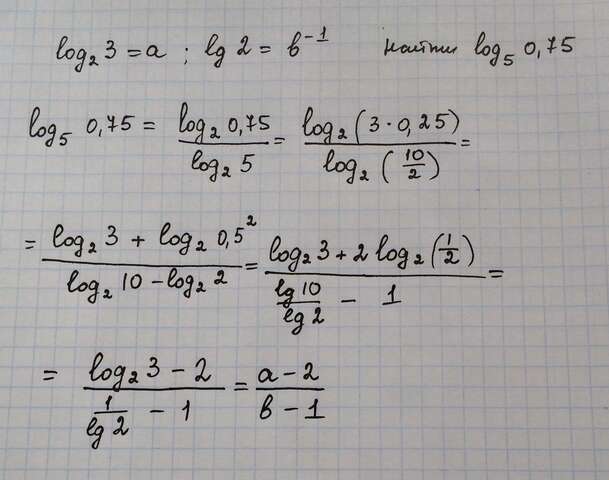 log₂ 3 = a ; lg 2 = b⁻¹ найти log₅ 0,75
log₅ 0,75 = log₂ 0,75 / log₂ 5 = log₂ (3 · 0,25) / log₂ (10/2) =
= (log₂ 3 + log₂ 0,5²) / (log₂ 10 − log₂ 2) = (log₂ 3 + 2 log₂ (1/2)) / (lg 10 / lg 2 − 1) =
= (log₂ 3 − 2) / (1 / lg 2 − 1) = (a − 2) / (b − 1)